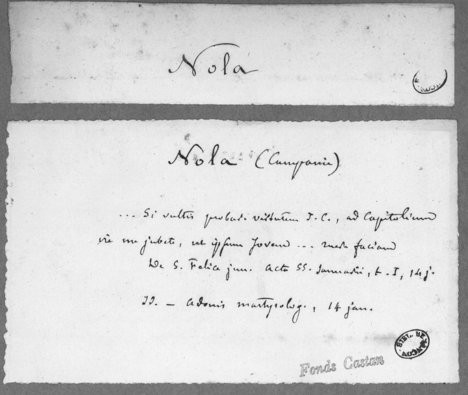 Nola
Nola (Campanie)
... Si vultis probare virtutem J. C., ad Capitolium
ire me jubete, ut ipsum Jovem ... ruere faciam
De S. Felice jun. Acta SS. Januarii, t. I, 14 j.
II. — Adonis martyrolog., 14 jan.
BIBL. DE
Fonds Castan